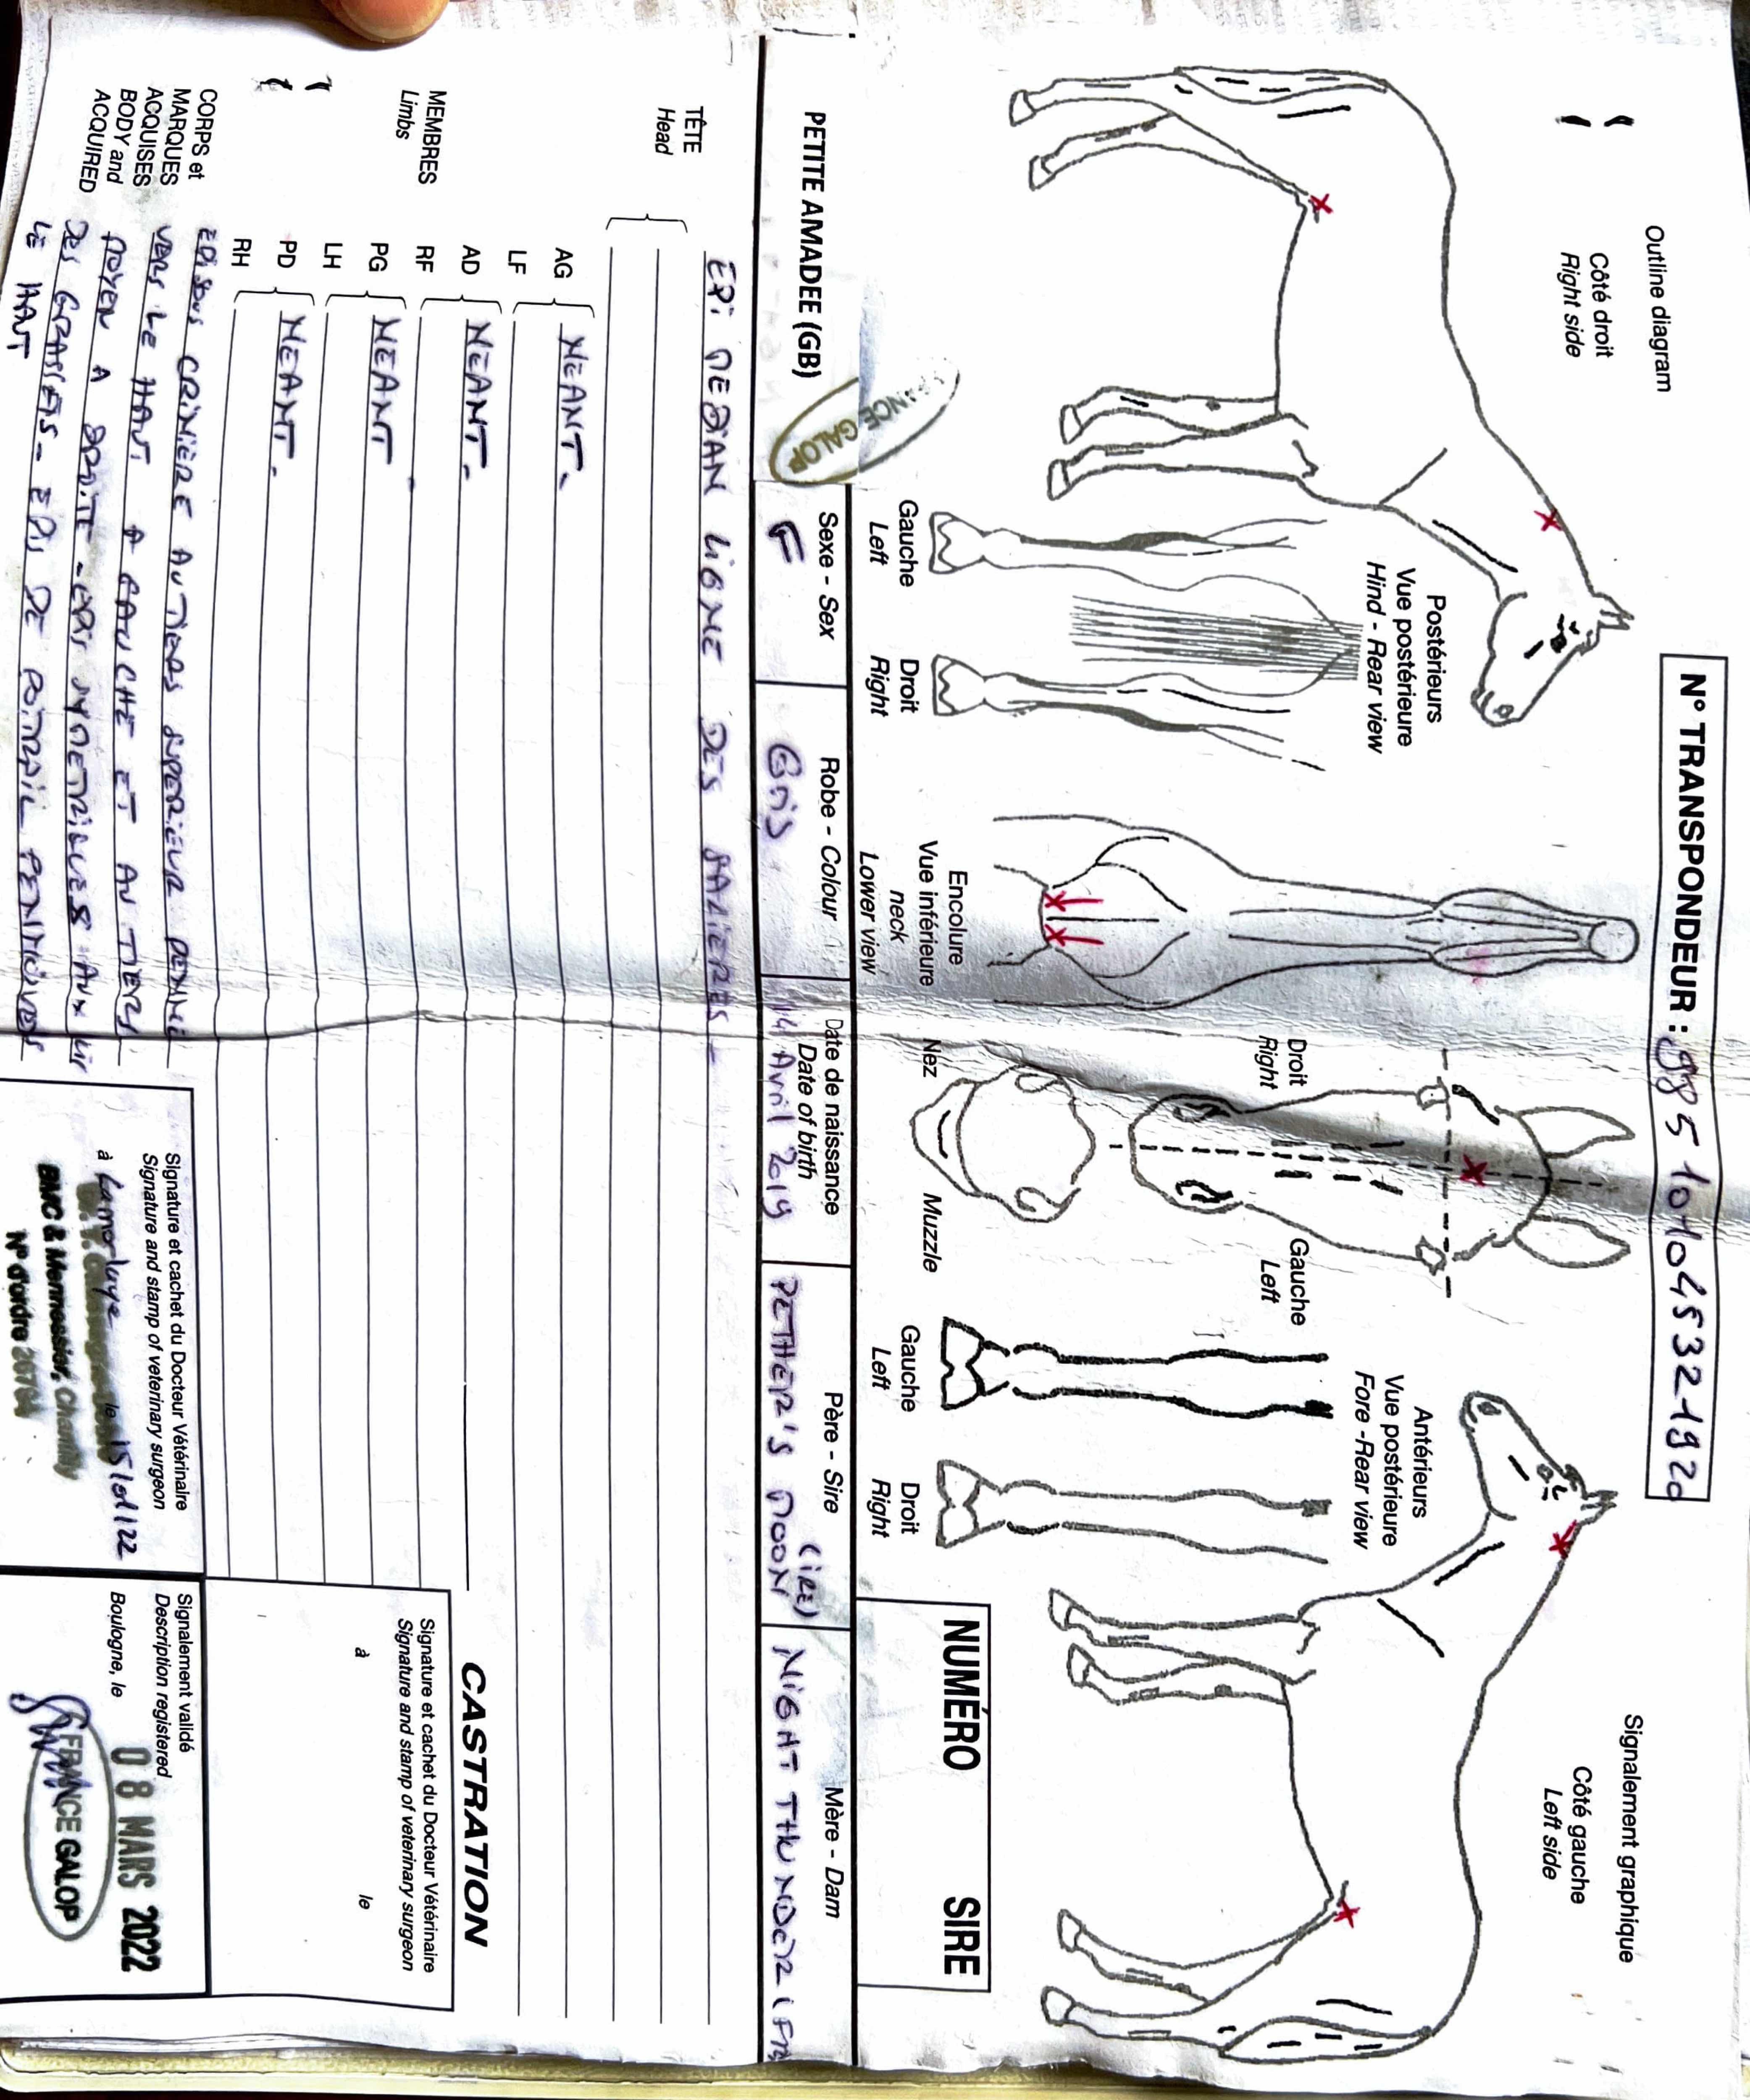 N° TRANSPONDEUR : 985 101045321920
Outline diagram
Côté droit
Right side
Signalement graphique
Côté gauche
Left side
Postérieurs
Vue postérieure
Hind - Rear view
Gauche
Left
Droit
Right
Encolure
Vue inférieure
neck
Lower view
Droit
Right
Gauche
Left
Nez
Muzzle
Antérieurs
Vue postérieure
Fore -Rear view
Gauche
Left
Droit
Right
NUMÉRO SIRE
FRANCE GALOP
PETITE AMADEE (GB)
Sexe - Sex
F
Robe - Colour
Gris
Date de naissance
Date of birth
14 Avril 2019
Père - Sire
PETHER'S MOON (IRE)
Mère - Dam
NIGHT THUNDER (FR)
TÊTE
Head
EPI MEDIAN LIGNE DES SALIERES -
MEMBRES
Limbs
AG
LF
NEANT -
AD
RF
NEANT -
PG
LH
NEANT
PD
RH
NEANT -
CORPS et
MARQUES
ACQUISES
BODY and
ACQUIRED
EPIS SOUS CRINIERE AU TIERS SUPERIEUR PENNE
VERS LE HAUT A GAUCHE ET AU TIERS
MOYEN A DROITE - EPIS SYMETRIQUES AUX
DES GRASSETS - EPIS DE POITRAIL PENNIQUES
LE HAUT
CASTRATION
Signature et cachet du Docteur Vétérinaire
Signature and stamp of veterinary surgeon
à le
Signature et cachet du Docteur Vétérinaire
Signature and stamp of veterinary surgeon
à Lamorlaye le 15/01/22
BMC & Mennessier, Chantilly
N° d'ordre
Signalement validé
Description registered
Boulogne, le 08 MARS 2022
FRANCE GALOP